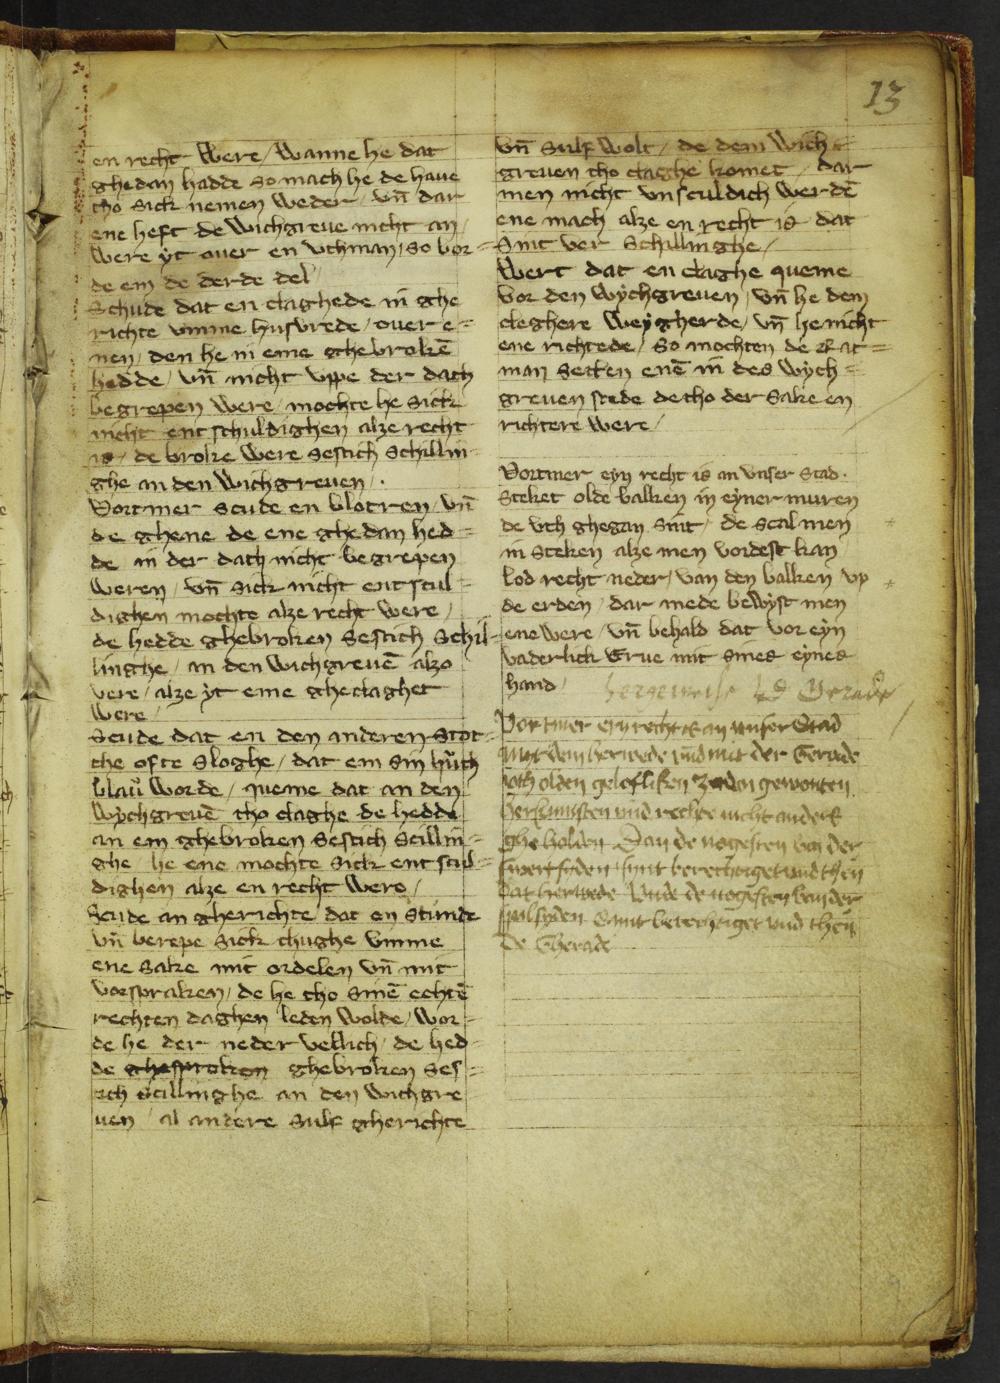 13
en recht Were / Wanne he dat
ghedan hadde so mach he de haue
tho sick nemen weder / vn̄ dar
ene heft de wichgreue nicht an /
Were yt ouer en vthman / so vor=
de em de derde del /
Schude dat en claghede in ghe
richte vmme husvrede / ouer e=
nen / den he in eme ghebrokē
hedde / vn̄ nicht vppe der dath
begrepen Were / mochte he sick
nicht entschuldighen alze recht
is / de broke were sestich schillin
ghe an den Wichgreuen / .
Vortmer scude en blotren / vn̄
de ghene de ene ghedan hed=
de in der dath nicht begrepen
Weren / vn̄ sick nicht entscul=
dighen mochte alze recht were /
de hedde ghebroken sestich schil=
linghe / an den wichgreuē alzo
vere / alze yt eme gheclaghet
Were /
Scude dat en den anderen stot=
the ofte sloghe / dat em sin huth
blau worde / queme dat an den
Wychgreuē tho claghe de hedde
an em ghebroken sestich scillin=
ghe / he ene mochte sick entscul=
dighen alze en recht Were /
Scude an gherichte dat en stunde
vn̄ berepe sick thughe vmme
ene sake mit ordelen vn̄ mit
vorspraken / de he tho sinē echtē
rechten daghen leden wolde / wor=
de he der neder vellich / de hed=
de ghesproken ghebroken ses=
tich scillinghe an den wichgre
uen / al andere sulf gherichte
vn̄ sulf wolt / de dem Wich=
greuen tho claghe komet / dar
men nicht vnsculdich werdē
ene mach alze en recht is dat
sint ver schillinghe /
Wert dat en claghe queme
vor den wychgreuen / vn̄ he dem
cleghere weygherde / vn̄ he nicht
ene richtede / so mochten de Rat=
man setten enē in des wych=
greuen stede de tho der sake en
richtere were /
Vortmer eyn recht is an vnser stad .
steket olde balken in eyner muren
de vth ghegan sint / de scal men
in steken alze men vordest kan
lod recht neder / van den balken vp
de erden / dar mede bewyst men
ene were / vn̄ behald dat vor eyn
vaderlick Erue mit sines eynes
hand /
Vortmer eyn recht is an vnser Stad
mit dem herwede vnd mit der Gerade
vth olden gelofliken geworten
vnd rechte nicht anders
gheholden Dan de negesten von der
swertsyden sint berechtiget vnd then
dat herwede Vnde de negesten van der
spilsyden Sint berechtiget vnd then
De Gherade